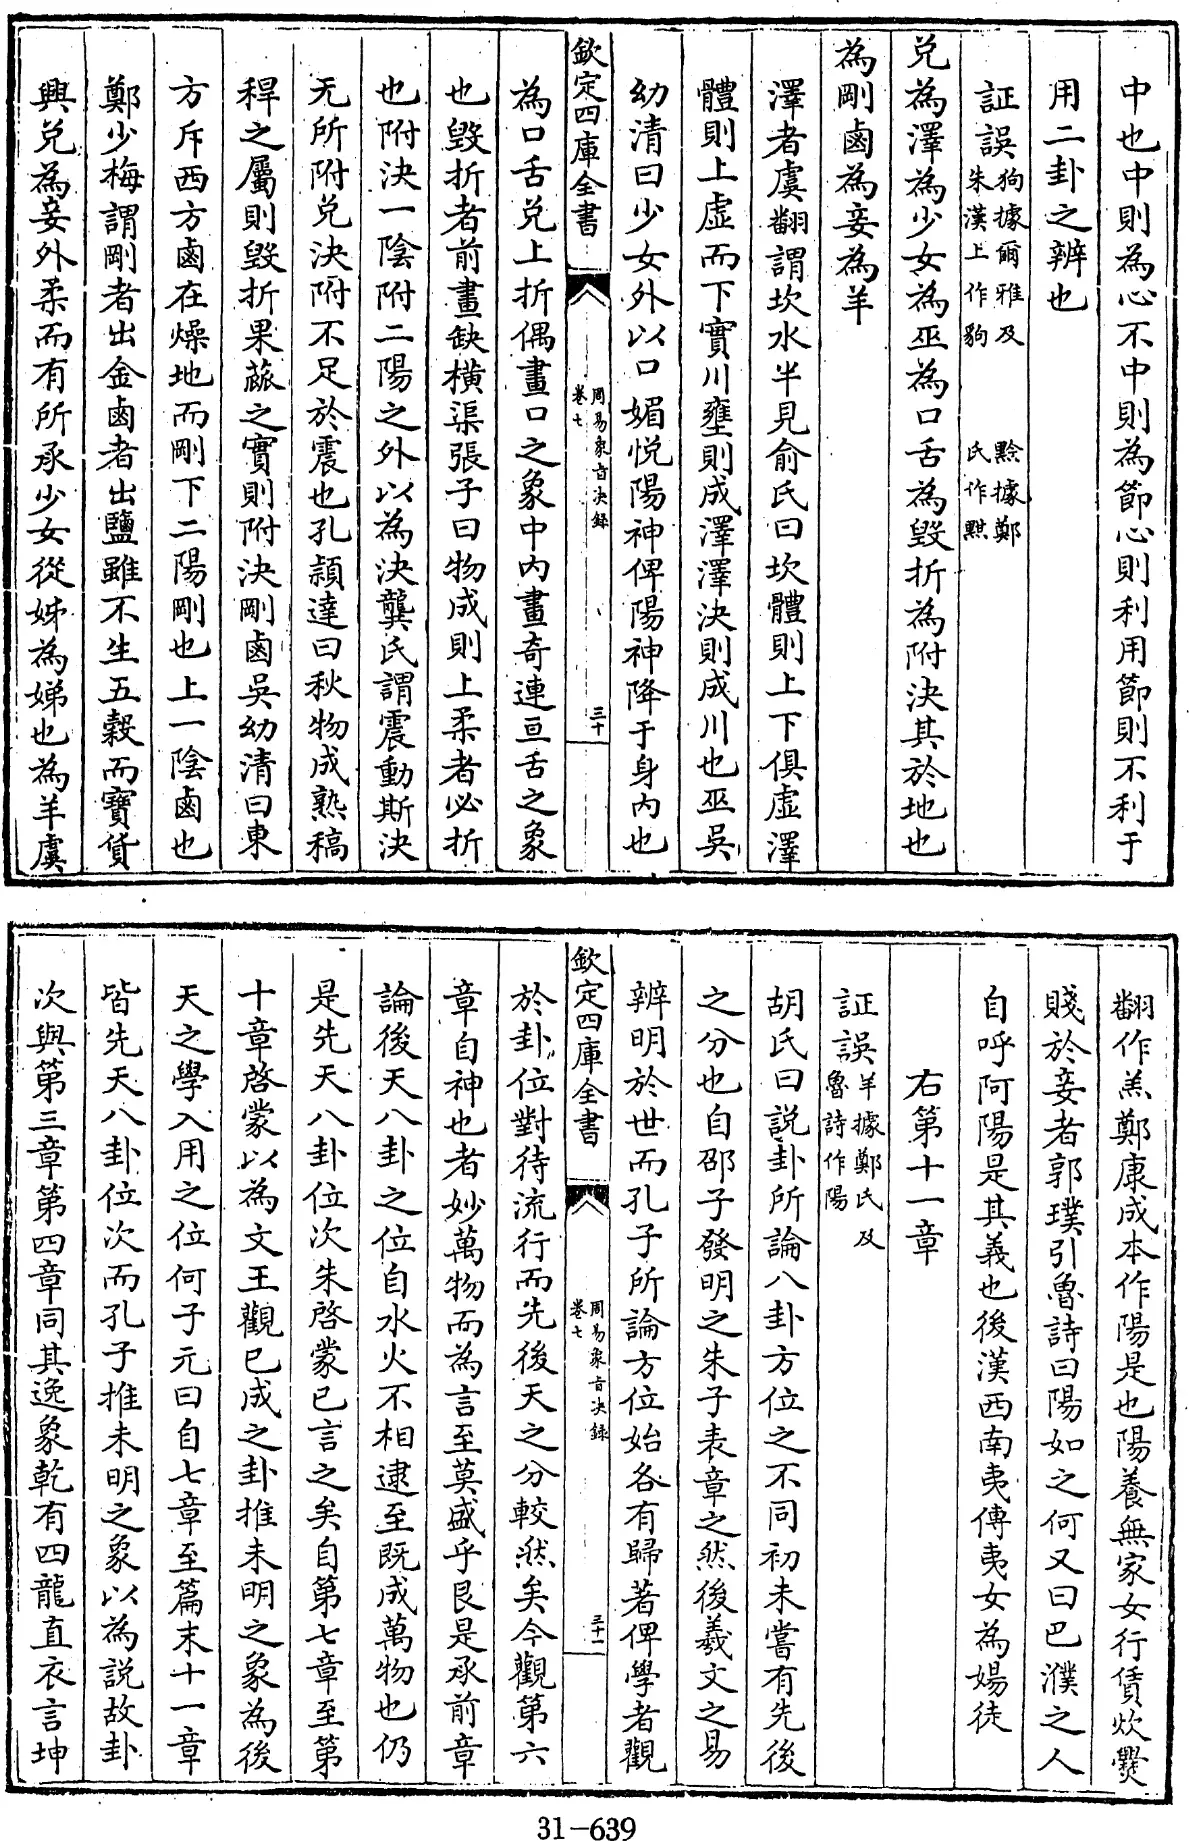 中也中則為心不中則為節心則利用節則不利于
用二卦之辨也
証誤狗據爾雅及朱漢上作豿　黔據鄭氏作黚
兌為澤為少女為巫為口舌為毀折為附決其於地也
為剛鹵為妾為羊
澤者虞翻謂坎水半見俞氏曰坎體則上下俱虛澤
體則上虛而下實川壅則成澤澤決則成川也巫吳
幼清曰少女外以口媚悅陽神俾陽神降于身內也
欽定四庫全書
周易象旨決録
卷七
三十
為口舌兌上折偶畫口之象中內畫奇連亘舌之象
也毀折者前畫缺橫渠張子曰物成則上柔者必折
也附決一陰附二陽之外以為決龔氏謂震動斯決
无所附兌決附不足於震也孔穎達曰秋物成熟稿
稈之屬則毀折果蓏之實則附決剛鹵吳幼清曰東
方斥西方鹵在燥地而剛下二陽剛也上一陰鹵也
鄭少梅謂剛者出金鹵者出鹽雖不生五穀而寶貨
興兌為妾外柔而有所承少女從姊為娣也為羊虞
翻作羔鄭康成本作陽是也陽養無家女行賃炊爨
賤於妾者郭璞引魯詩曰陽如之何又曰巴濮之人
自呼阿陽是其義也後漢西南夷傳夷女為婸徒
右第十一章
証誤羊據鄭氏及魯詩作陽
胡氏曰說卦所論八卦方位之不同初未嘗有先後
之分也自邵子發明之朱子表章之然後羲文之易
辨明於世而孔子所論方位始各有歸著俾學者觀
欽定四庫全書
周易象旨決録
卷七
三十一
於卦位對待流行而先後天之分較然矣今觀第六
章自神也者妙萬物而為言至莫盛乎艮是承前章
論後天八卦之位自水火不相逮至既成萬物也仍
是先天八卦位次朱啓蒙已言之矣自第七章至第
十章啓蒙以為文王觀已成之卦推未明之象為後
天之學入用之位何子元曰自七章至篇末十一章
皆先天八卦位次而孔子推未明之象以為說故卦
次與第三章第四章同其逸象乾有四龍直衣言坤
31-639